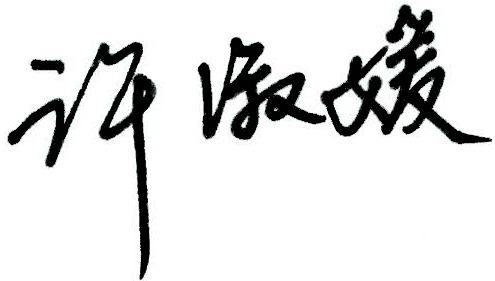 许淑媛